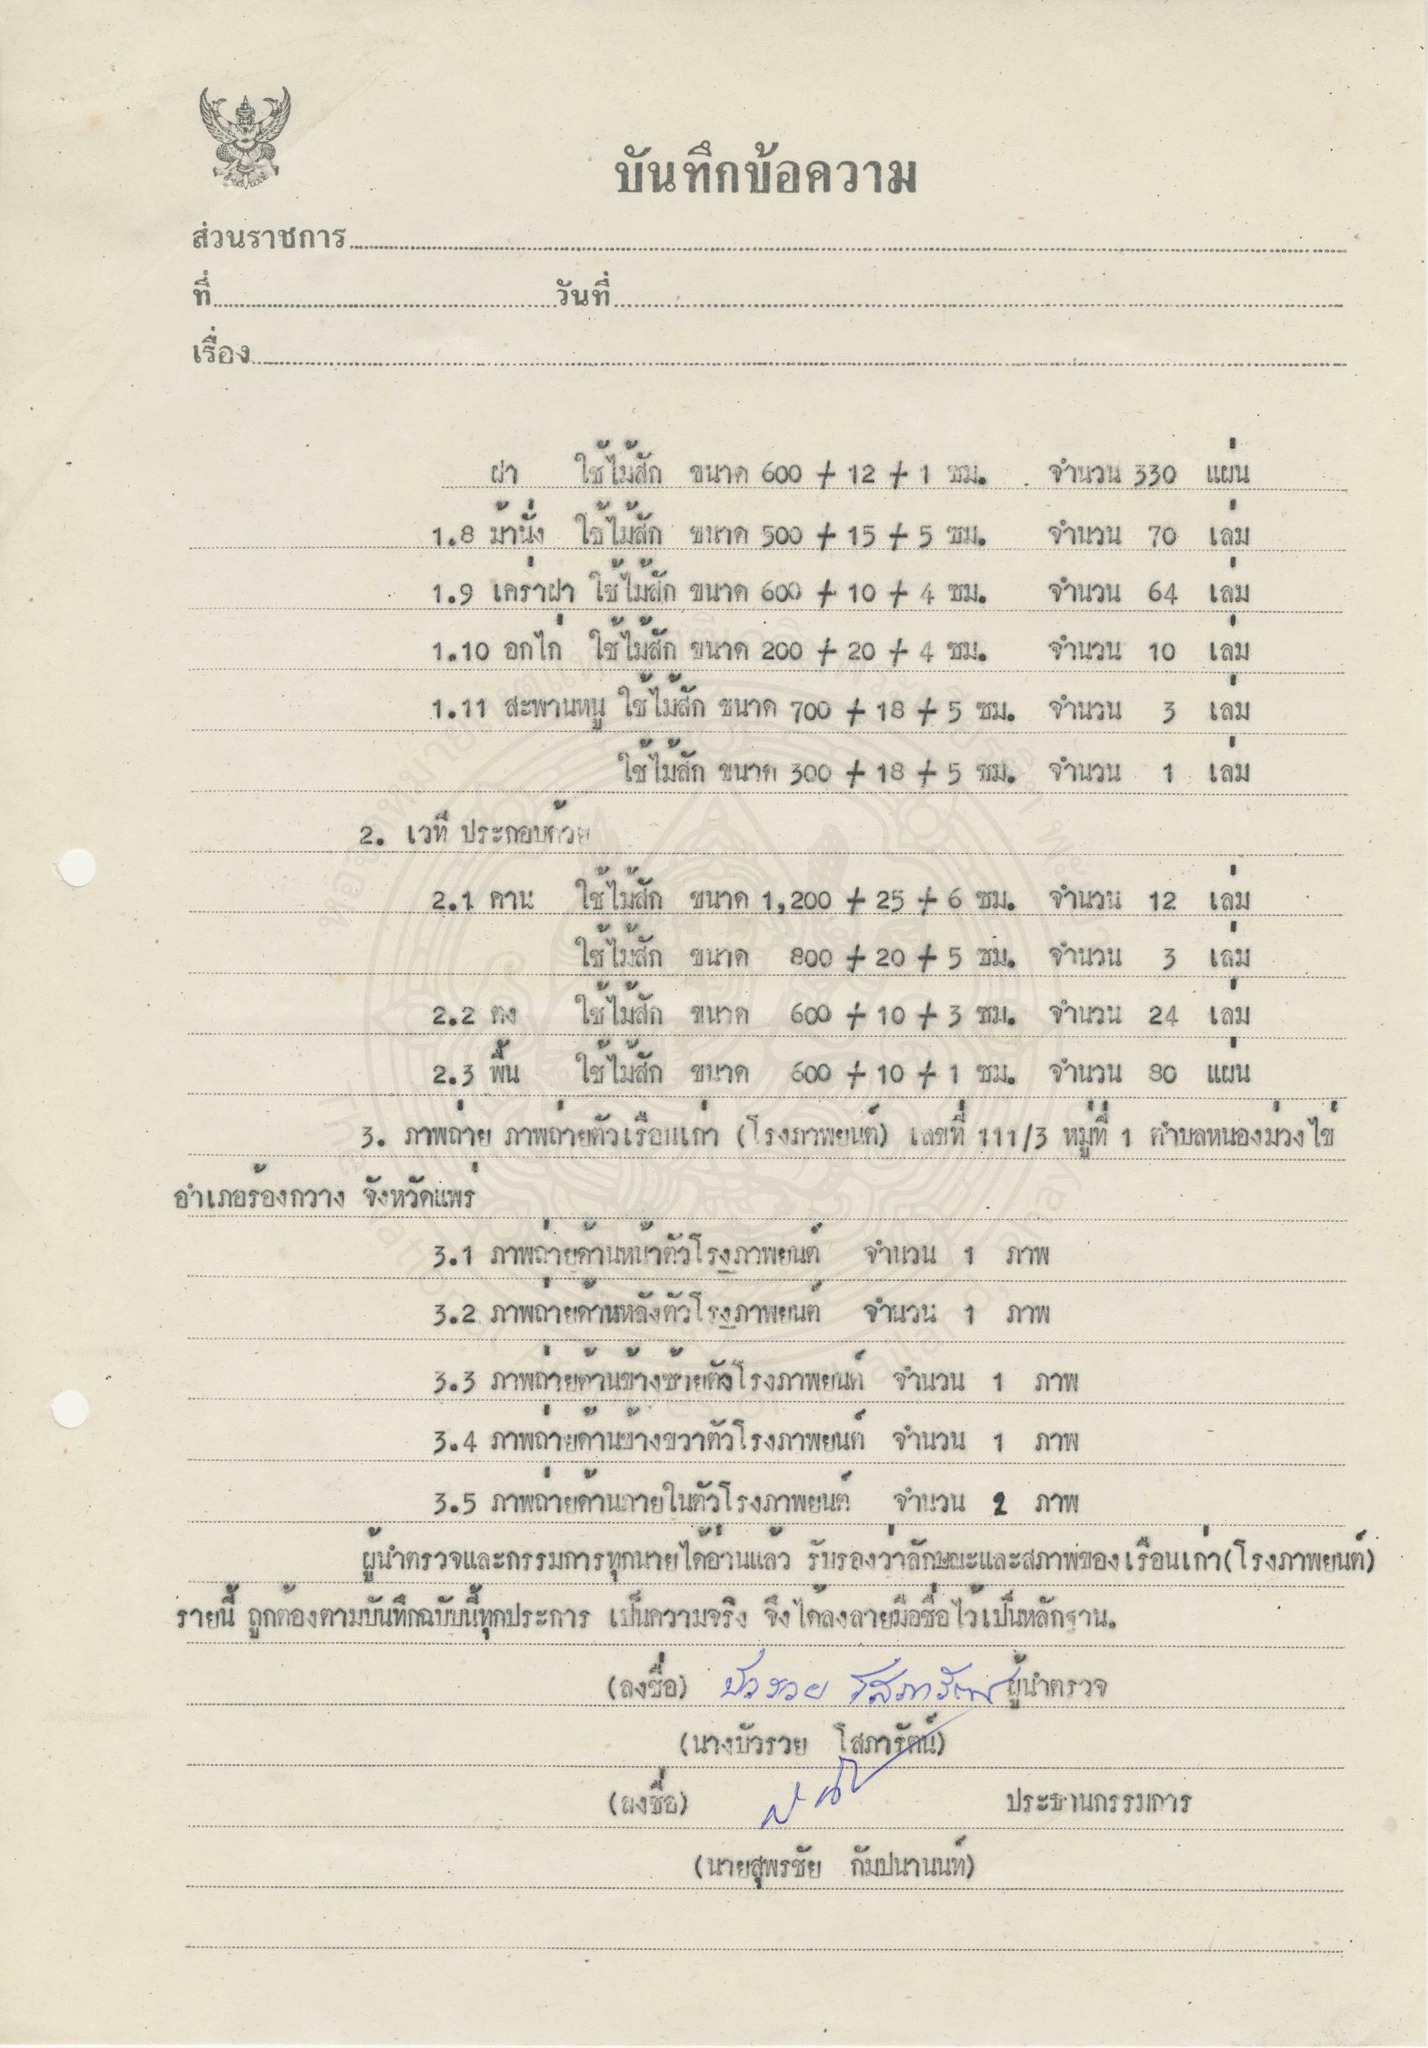 บันทึกข้อความ
ส่วนราชการ
ที่ วันที่
เรื่อง
ฝา ใช้ไม้สัก ขนาด 600 + 12 + 1 ซม. จำนวน 330 แผ่น
1.8 ม้านั่ง ใช้ไม้สัก ขนาด 500 + 15 + 5 ซม. จำนวน 70 เล่ม
1.9 เคร่าฝา ใช้ไม้สัก ขนาด 600 + 10 + 4 ซม. จำนวน 64 เล่ม
1.10 อกไก่ ใช้ไม้สัก ขนาด 200 + 20 + 4 ซม. จำนวน 10 เล่ม
1.11 สะพานหนู ใช้ไม้สัก ขนาด 700 + 18 + 5 ซม. จำนวน 3 เล่ม
ใช้ไม้สัก ขนาด 300 + 18 + 5 ซม. จำนวน 1 เล่ม
2. เวที ประกอบด้วย
2.1 คาน ใช้ไม้สัก ขนาด 1,200 + 25 + 6 ซม. จำนวน 12 เล่ม
ใช้ไม้สัก ขนาด 800 + 20 + 5 ซม. จำนวน 3 เล่ม
2.2 ตง ใช้ไม้สัก ขนาด 600 + 10 + 3 ซม. จำนวน 24 เล่ม
2.3 พื้น ใช้ไม้สัก ขนาด 600 + 10 + 1 ซม. จำนวน 80 แผ่น
3. ภาพถ่าย ภาพถ่ายตัวเรือนเก่า (โรงภาพยนต์) เลขที่ 111/3 หมู่ที่ 1 ตำบลหนองม่วงไข่
อำเภอร้องกวาง จังหวัดแพร่
3.1 ภาพถ่ายด้านหน้าตัวโรงภาพยนต์ จำนวน 1 ภาพ
3.2 ภาพถ่ายด้านหลังตัวโรงภาพยนต์ จำนวน 1 ภาพ
3.3 ภาพถ่ายด้านข้างซ้ายตัวโรงภาพยนต์ จำนวน 1 ภาพ
3.4 ภาพถ่ายด้านข้างขวาตัวโรงภาพยนต์ จำนวน 1 ภาพ
3.5 ภาพถ่ายด้านภายในตัวโรงภาพยนต์ จำนวน 2 ภาพ
ผู้นำตรวจและกรรมการทุกนายได้อ่านแล้ว รับรองว่าลักษณะและสภาพของเรือนเก่า(โรงภาพยนต์)
รายนี้ ถูกต้องตามบันทึกฉบับนี้ทุกประการ เป็นความจริง จึงได้ลงลายมือชื่อไว้เป็นหลักฐาน.
(ลงชื่อ) บัวรวย โสภารัตน์ ผู้นำตรวจ
(นางบัวรวย โสภารัตน์)
(ลงชื่อ) ประธานกรรมการ
(นายสุพรชัย กัมปนานนท์)